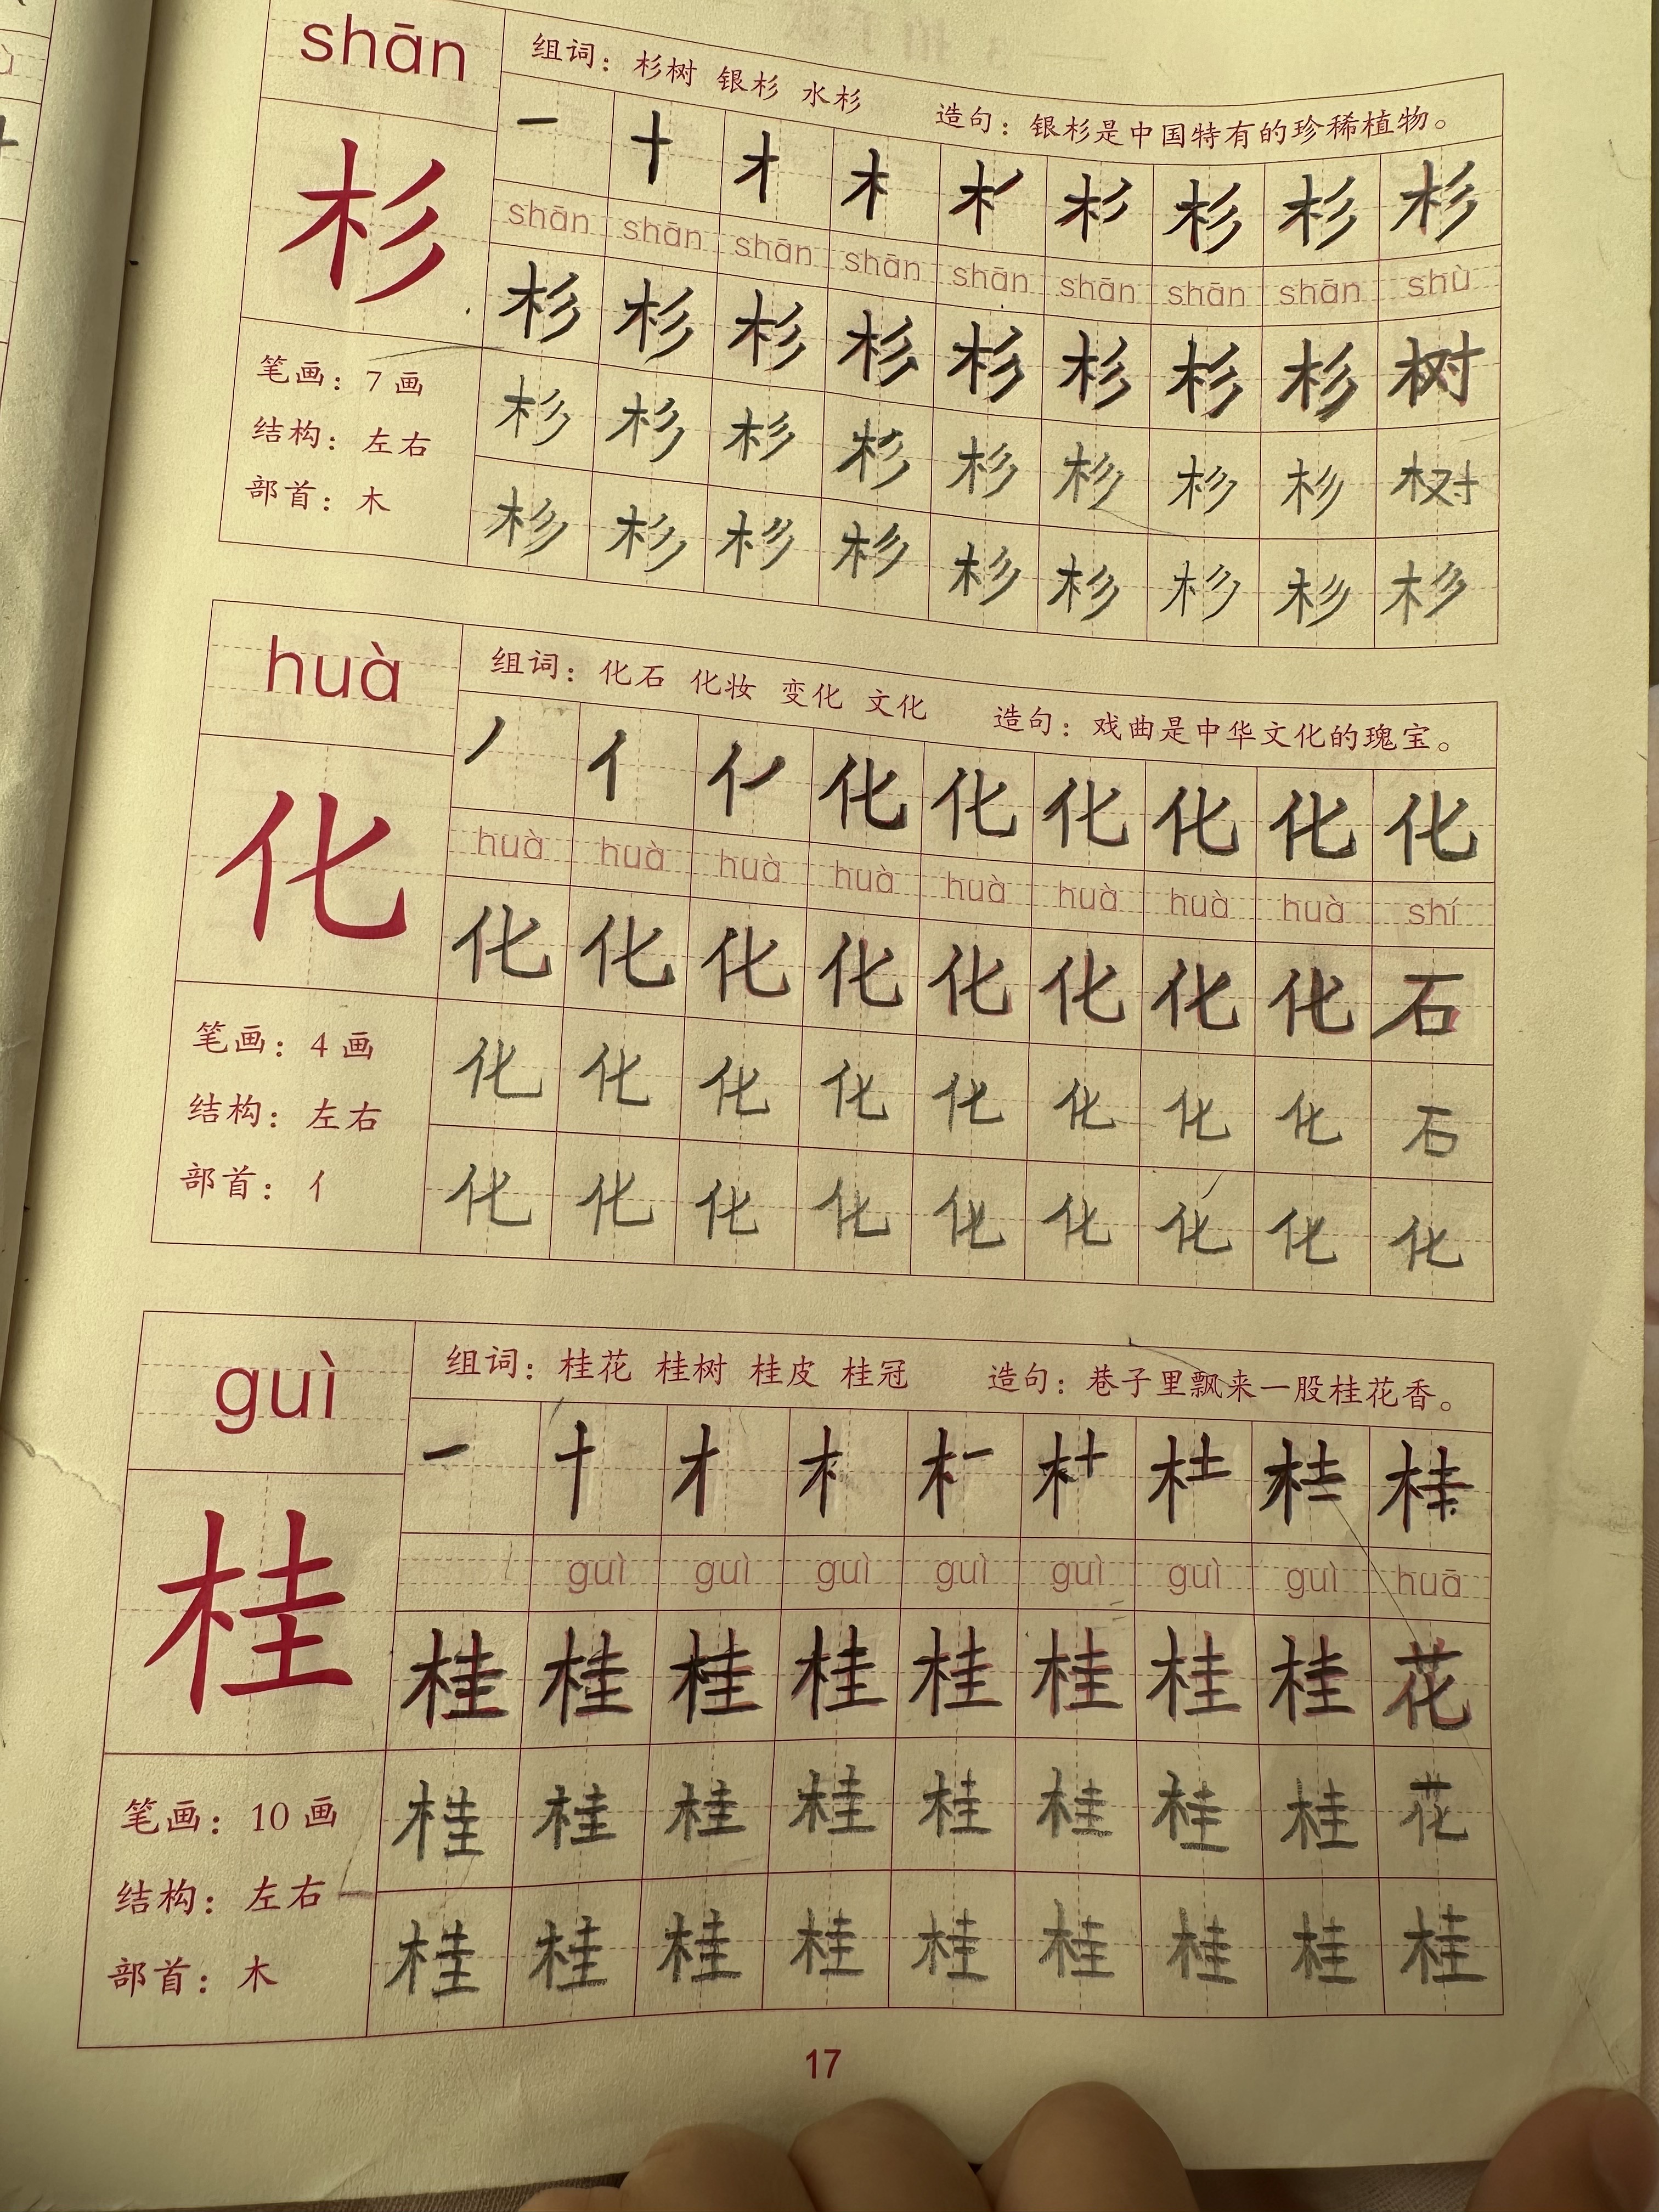 shān
组词：杉树 银杉 水杉 造句：银杉是中国特有的珍稀植物。
杉
一 十 才 木 杉 杉 杉
shān shān shān shān shān shān shān shān shù
杉 杉 杉 杉 杉 杉 杉 杉 树
杉 杉 杉 杉 杉 杉 杉 杉 树
杉 杉 杉 杉 杉 杉 杉 杉 杉
笔画：7画
结构：左右
部首：木
huà
组词：化石 化妆 变化 文化 造句：戏曲是中华文化的瑰宝。
化
丿 亻 化 化 化 化 化 化
huà huà huà huà huà huà huà huà shí
化 化 化 化 化 化 化 化 石
化 化 化 化 化 化 化 化 石
化 化 化 化 化 化 化 化 化
笔画：4画
结构：左右
部首：亻
guì
组词：桂花 桂树 桂皮 桂冠 造句：巷子里飘来一股桂花香。
桂
一 十 才 木 杜
guì guì guì guì guì guì guì huā
桂 桂 桂 桂 桂 桂 桂 桂 花
桂 桂 桂 桂 桂 桂 桂 桂 花
桂 桂 桂 桂 桂 桂 桂 桂 桂
笔画：10画
结构：左右
部首：木
17